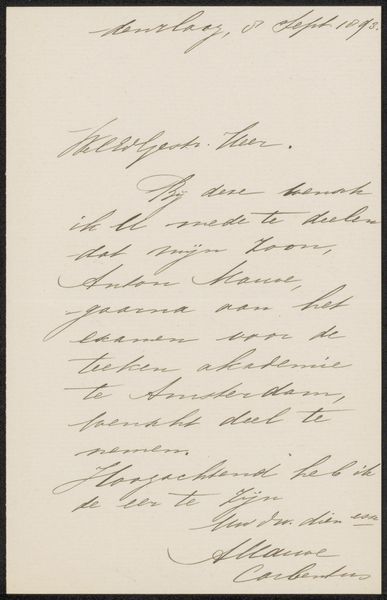 den Haag, 8 Sept. 1893.
WelEdGestr. Heer.
Bij deze wensch
ik U mede te deelen
dat mijn Zoon,
Anton Mauve,
gaarne aan het
examen voor de
teeken akademie
te Amsterdam,
wenscht deel te
nemen.
Hoogachtend heb ik
de eer te zijn
Uw dw. dien
A Mauve
Carbentus